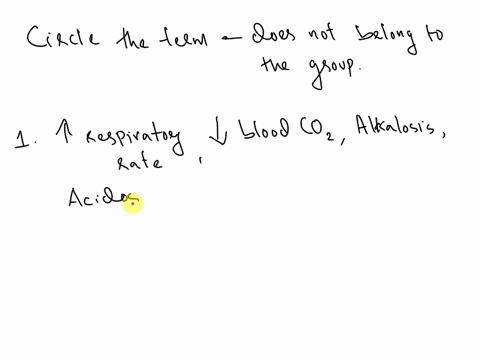 Circle the term - does not belong to
the group.
1. ↑ Respiratory ↓ blood CO2, Alkalosis,
rate,
Acidos